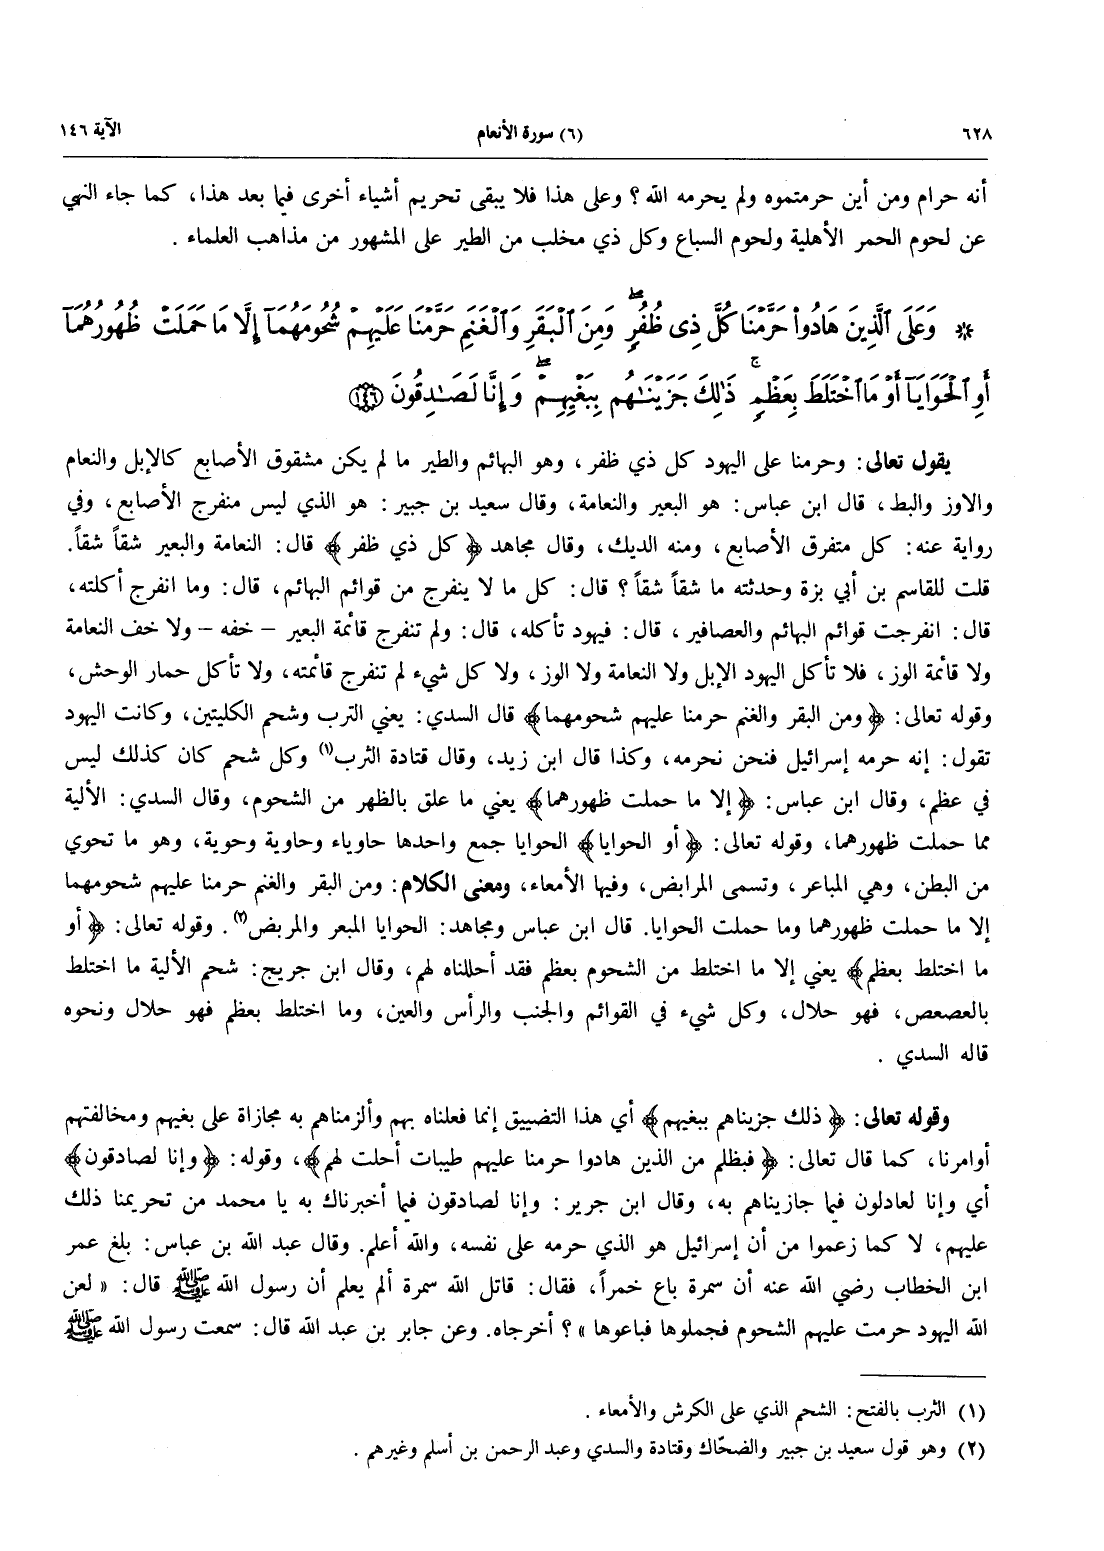 ٦٢٨ (٦) سورة الأنعام الآية ١٤٦
أنه حرام ومن أين حرمتموه ولم يحرمه الله ؟ وعلى هذا فلا يبقى تحريم أشياء أخرى فيما بعد هذا، كما جاء النهي
عن لحوم الحمر الأهلية ولحوم السباع وكل ذي مخلب من الطير على المشهور من مذاهب العلماء .
* وَعَلَى ٱلَّذِينَ هَادُوا۟ حَرَّمْنَا كُلَّ ذِى ظُفُرٍۖ وَمِنَ ٱلْبَقَرِ وَٱلْغَنَمِ حَرَّمْنَا عَلَيْهِمْ شُحُومَهُمَآ إِلَّا مَا حَمَلَتْ ظُهُورُهُمَآ
أَوِ ٱلْحَوَايَآ أَوْ مَا ٱخْتَلَطَ بِعَظْمٍۚ ذَٰلِكَ جَزَيْنَٰهُم بِبَغْيِهِمْۖ وَإِنَّا لَصَٰدِقُونَ ﴿١٤٦﴾
يقول تعالى: وحرمنا على اليهود كل ذي ظفر، وهو البهائم والطير ما لم يكن مشقوق الأصابع كالإبل والنعام
والاوز والبط، قال ابن عباس: هو البعير والنعامة، وقال سعيد بن جبير: هو الذي ليس منفرج الأصابع، وفي
رواية عنه: كل متفرق الأصابع، ومنه الديك، وقال مجاهد ﴿كل ذي ظفر﴾ قال: النعامة والبعير شقاً شقاً.
قلت للقاسم بن أبي بزة وحدثته ما شقاً شقاً؟ قال: كل ما لا ينفرج من قوائم البهائم، قال: وما انفرج أكلته،
قال: انفرجت قوائم البهائم والعصافير، قال: فيهود تأكله، قال: ولم تنفرج قائمة البعير – خفه – ولا خف النعامة
ولا قائمة الوز، فلا تأكل اليهود الإبل ولا النعامة ولا الوز، ولا كل شيء لم تنفرج قائمته، ولا تأكل حمار الوحش،
وقوله تعالى: ﴿ومن البقر والغنم حرمنا عليهم شحومهما﴾ قال السدي: يعني الترب وشحم الكليتين، وكانت اليهود
تقول: إنه حرمه إسرائيل فنحن نحرمه، وكذا قال ابن زيد، وقال قتادة الثرب(١) وكل شحم كان كذلك ليس
في عظم، وقال ابن عباس: ﴿إلا ما حملت ظهورهما﴾ يعني ما علق بالظهر من الشحوم، وقال السدي: الألية
مما حملت ظهورهما، وقوله تعالى: ﴿أو الحوايا﴾ الحوايا جمع واحدها حاوياء وحاوية وحوية، وهو ما تحوي
من البطن، وهي المباعر، وتسمى المرابض، وفيها الأمعاء، ومعنى الكلام: ومن البقر والغنم حرمنا عليهم شحومهما
إلا ما حملت ظهورهما وما حملت الحوايا. قال ابن عباس ومجاهد: الحوايا المبعر والمربض(٢). وقوله تعالى: ﴿أو
ما اختلط بعظم﴾ يعني إلا ما اختلط من الشحوم بعظم فقد أحللناه لهم، وقال ابن جريج: شحم الألية ما اختلط
بالعصعص، فهو حلال، وكل شيء في القوائم والجنب والرأس والعين، وما اختلط بعظم فهو حلال ونحوه
قاله السدي .
وقوله تعالى: ﴿ذلك جزيناهم ببغيهم﴾ أي هذا التضييق إنما فعلناه بهم وألزمناهم به مجازاة على بغيهم ومخالفتهم
أوامرنا، كما قال تعالى: ﴿فبظلم من الذين هادوا حرمنا عليهم طيبات أحلت لهم﴾، وقوله: ﴿وإنا لصادقون﴾
أي وإنا لعادلون فيما جازيناهم به، وقال ابن جرير: وإنا لصادقون فيما أخبرناك به يا محمد من تحريمنا ذلك
عليهم، لا كما زعموا من أن إسرائيل هو الذي حرمه على نفسه، والله أعلم. وقال عبد الله بن عباس: بلغ عمر
ابن الخطاب رضي الله عنه أن سمرة باع خمراً، فقال: قاتل الله سمرة ألم يعلم أن رسول الله ﷺ قال: « لعن
الله اليهود حرمت عليهم الشحوم فجملوها فباعوها »؟ أخرجاه. وعن جابر بن عبد الله قال: سمعت رسول الله ﷺ
(١) الثرب بالفتح: الشحم الذي على الكرش والأمعاء .
(٢) وهو قول سعيد بن جبير والضحّاك وقتادة والسدي وعبد الرحمن بن أسلم وغيرهم .